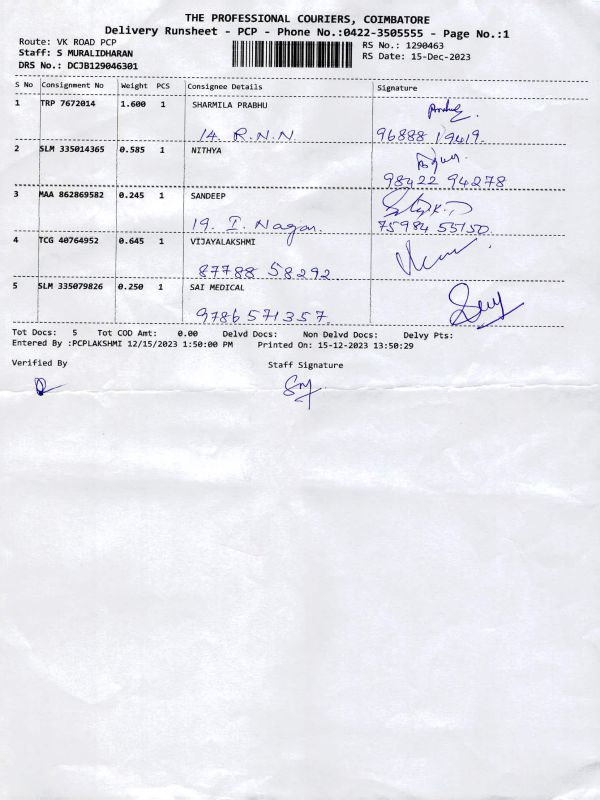 THE PROFESSIONAL COURIERS, COIMBATORE
Delivery Runsheet - PCP - Phone No.:0422-3505555 - Page No.:1
Route: VK ROAD PCP RS No.: 1290463
Staff: S MURALIDHARAN RS Date: 15-Dec-2023
DRS No.: DCJB129046301
S No Consignment No Weight PCS Consignee Details Signature
1 TRP 7672014 1.600 1 SHARMILA PRABHU
14. R.N.N 96888 19419.
2 SLM 335014365 0.585 1 NITHYA
98422 94278
3 MAA 862869582 0.245 1 SANDEEP
19. I. Nagar. 75984 55150.
4 TCG 40764952 0.645 1 VIJAYALAKSHMI
87788 58292
5 SLM 335079826 0.250 1 SAI MEDICAL
9786 571357
Tot Docs: 5 Tot COD Amt: 0.00 Delvd Docs: Non Delvd Docs: Delvy Pts:
Entered By :PCPLAKSHMI 12/15/2023 1:50:00 PM Printed On: 15-12-2023 13:50:29
Verified By Staff Signature